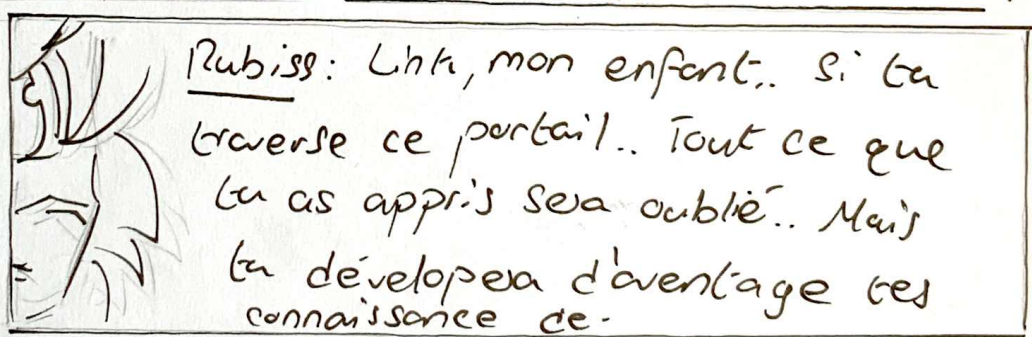 Rubiss: Link, mon enfant.. Si tu
traverse ce portail.. Tout ce que
tu as appris sera oublié.. Mais
tu dévelopera d'aventage tes
connaissance de.